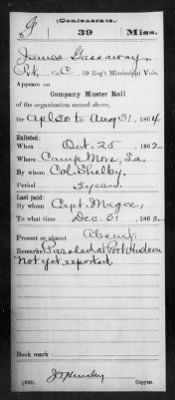 (Confederate.)
G 39 Miss.
James Gassaway
Pvt., Co. C, 39 Reg't Mississippi Vols.
Appears on
Company Muster Roll
of the organization named above,
for Apl 30 to Aug 31, 1864
Enlisted:
When Oct. 25, 1862
Where Camp Moore, La.
By whom Col. Shelby
Period 3 years
Last paid:
By whom Capt. Magee,
To what time Dec. 31, 1862
Present or absent Absent
Remarks: Paroled at Port Hudson
Not yet reported
Book mark:
Copyist.